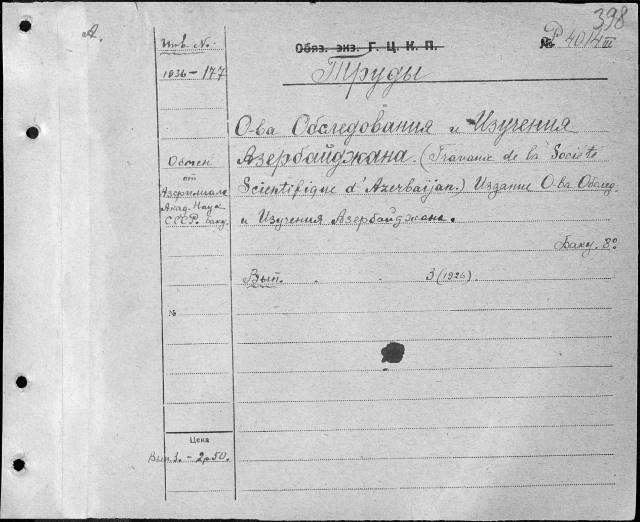 398
А.
Инв. No.
Обяз. экз. Г. Ц. К. П.
№ Р 4014 III
1936-177
Труды
О-ва Обследования и Изучения
Обмен
Азербайджана. (Travaux de la Société
от
Азфилиала
Scientifique d'Azerbaijan.) Издание О-ва Обслед.
Акад. Наук
СССР. Баку.
и Изучения Азербайджана.
Баку. 8º
Вып. . . 3 (1926).
№
Цена
Вып. 3. - 2р 50.